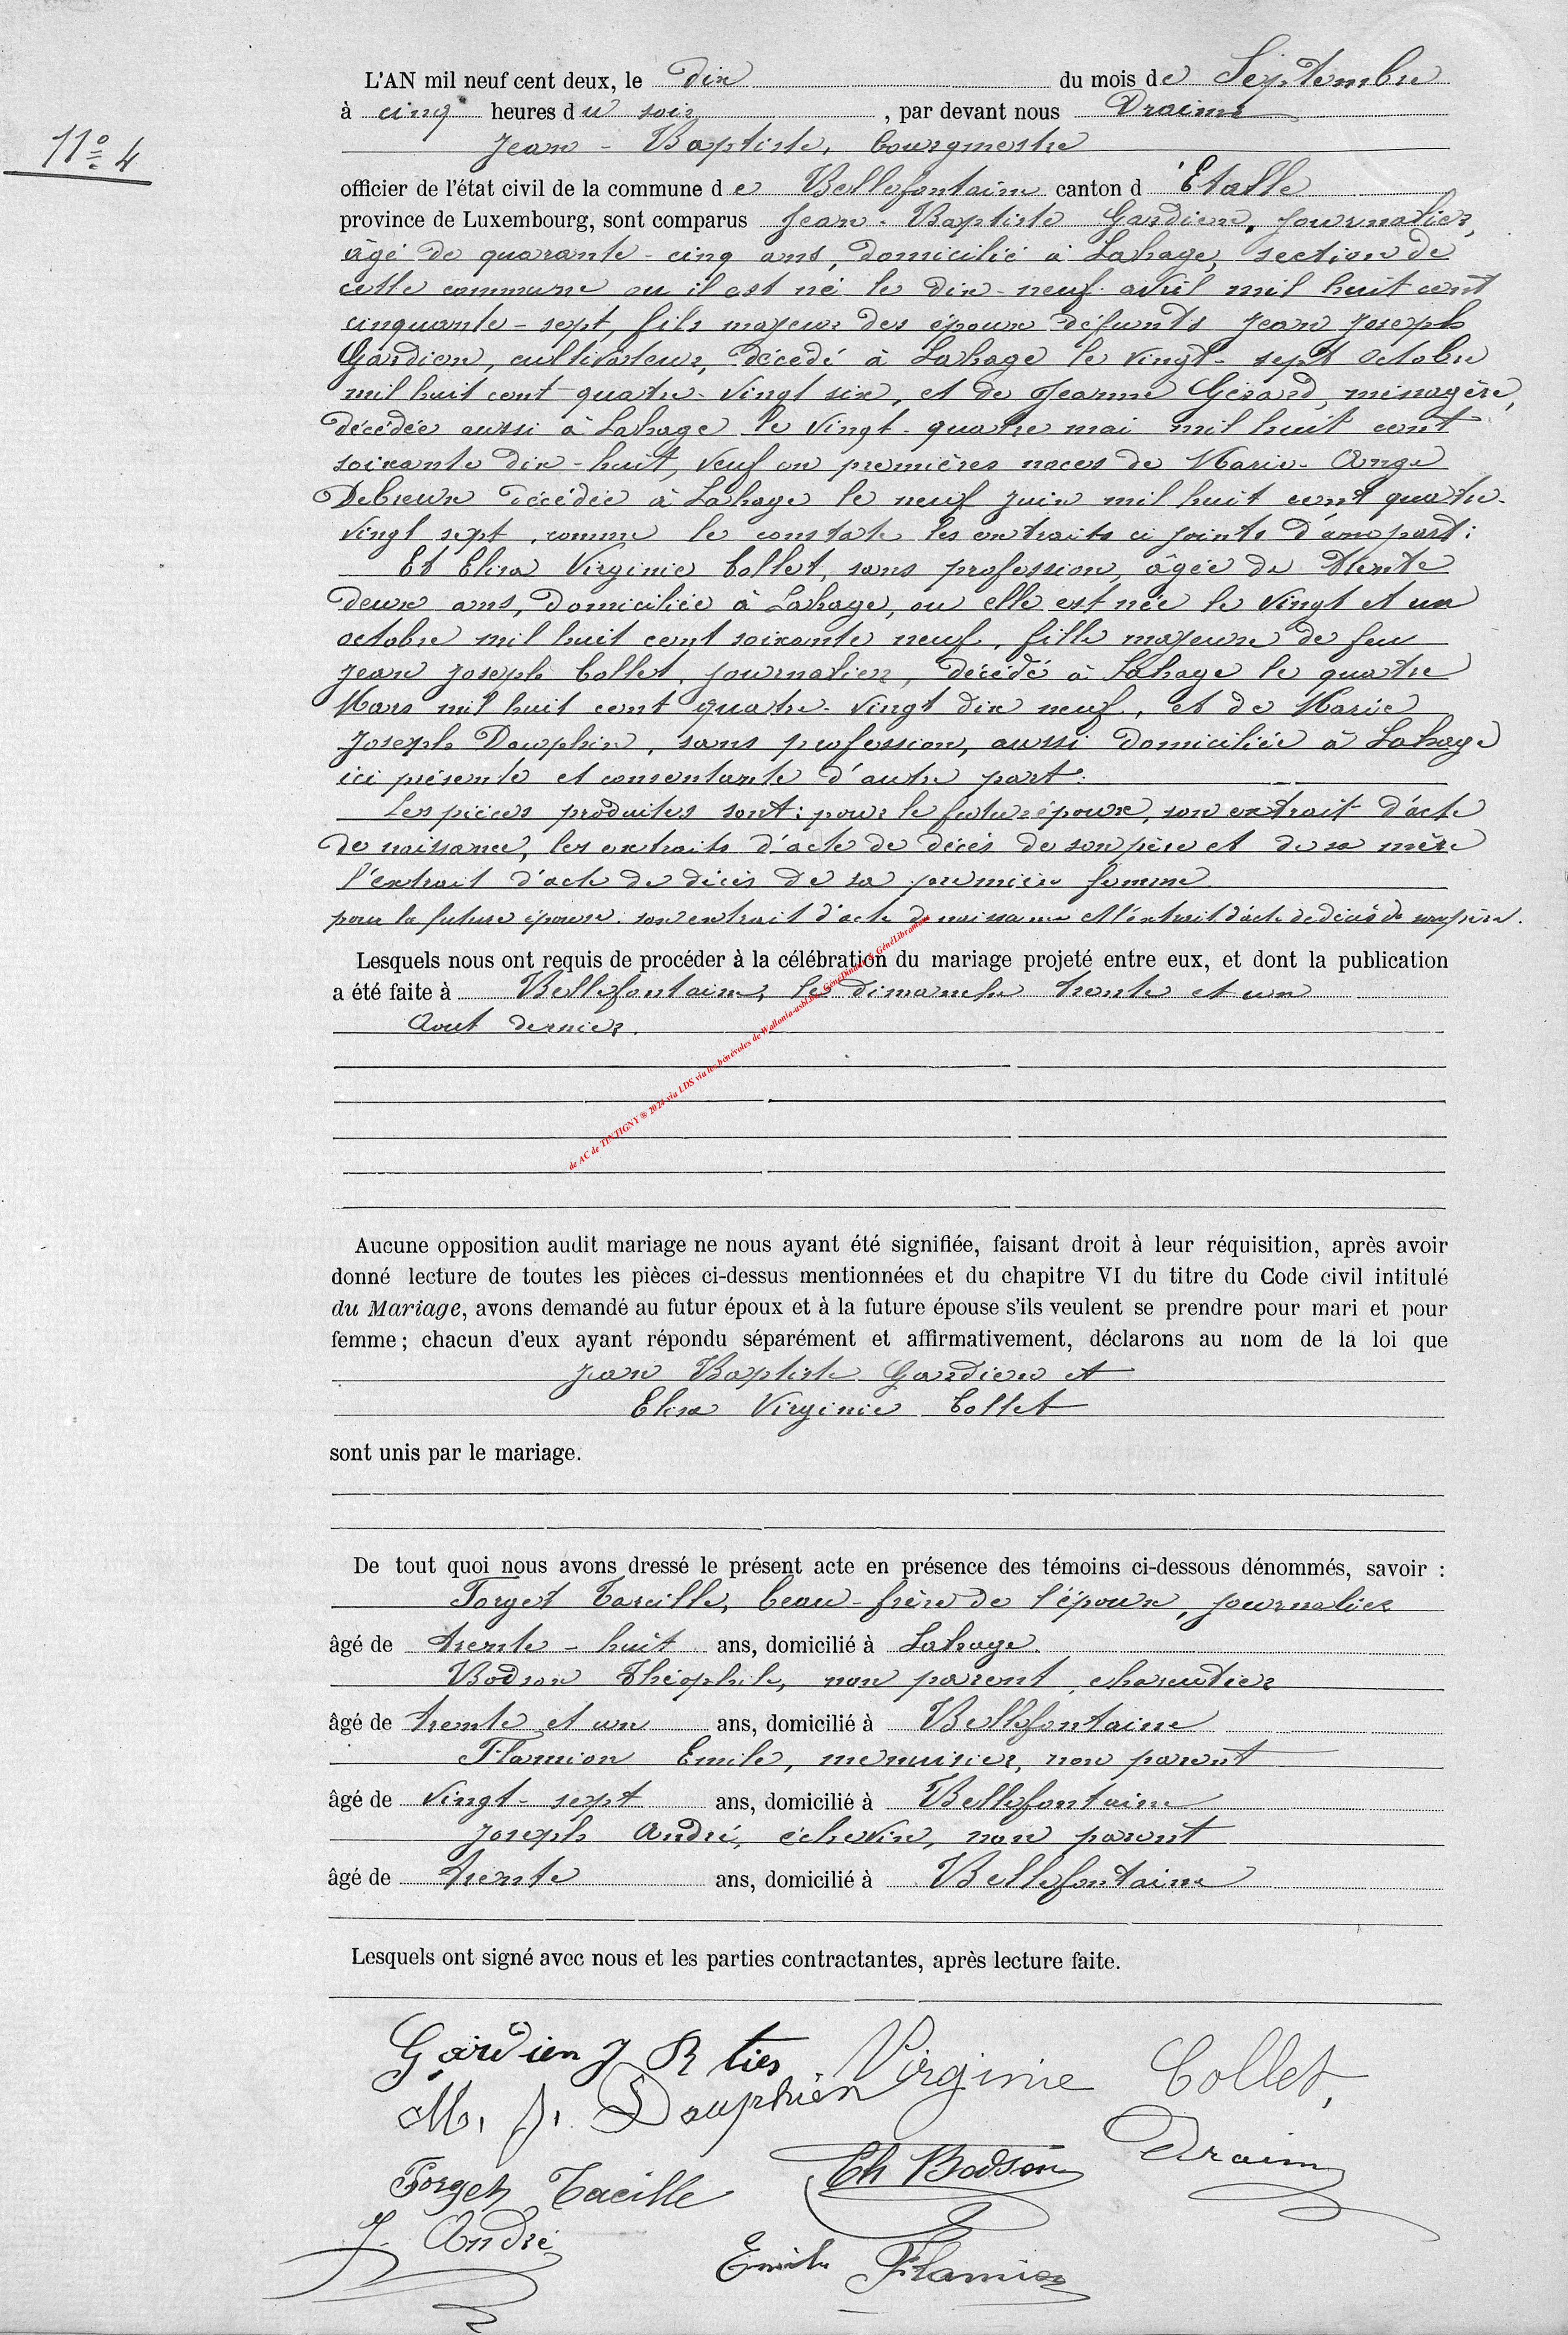 L'AN mil neuf cent deux, le dix du mois de Septembre
à cinq heures du soir, par devant nous Draime
N° 4
Jean-Baptiste, bourgmestre
officier de l'état civil de la commune de Bellefontaine canton d'Etalle
province de Luxembourg, sont comparus Jean-Baptiste Gardien, journalier,
âgé de quarante-cinq ans, domicilié à Lahage, section de
cette commune ou il est né le dix-neuf avril mil huit cent
cinquante-sept, fils majeur des époux défunts Jean Joseph
Gardien, cultivateur, décédé à Lahage le vingt-sept Octobre
mil huit cent quatre-vingt six, et de Jeanne Gérard, ménagère,
décédée aussi à Lahage le vingt-quatre mai mil huit cent
soixante dix-huit, veuf en premières noces de Marie-Ange
Debreux décédée à Lahage le neuf juin mil huit cent quatre-
vingt sept, comme le constate les extraits ci joints d'une part:
Et Elisa Virginie Collet, sans profession, âgée de trente
deux ans, domiciliée à Lahage, ou elle est née le vingt et un
octobre mil huit cent soixante neuf, fille majeure de feu
Jean Joseph Collet, journalier, décédé à Lahage le quatre
Mars mil huit cent quatre-vingt dix neuf, et de Marie
Joseph Dauphin, sans profession, aussi domiciliée à Lahage
ici présente et consentante d'autre part:
Les pièces produites sont: pour le futur époux, son extrait d'acte
de naissance, les extraits d'acte de décès de son père et de sa mère
l'extrait d'acte de décès de sa première femme
pour la future épouse son extrait d'acte de naissance et l'extrait d'acte de décès de son père.
Lesquels nous ont requis de procéder à la célébration du mariage projeté entre eux, et dont la publication
a été faite à Bellefontaine, le dimanche trente et un
Aout dernier.
de AC de TINTIGNY ® 2024 via LDS via les bénévoles de Wallonia-asbl.be, GénéDinant & GénéLibramont
Aucune opposition audit mariage ne nous ayant été signifiée, faisant droit à leur réquisition, après avoir
donné lecture de toutes les pièces ci-dessus mentionnées et du chapitre VI du titre du Code civil intitulé
du Mariage, avons demandé au futur époux et à la future épouse s'ils veulent se prendre pour mari et pour
femme; chacun d'eux ayant répondu séparément et affirmativement, déclarons au nom de la loi que
Jean Baptiste Gardien et
Elisa Virginie Collet
sont unis par le mariage.
De tout quoi nous avons dressé le présent acte en présence des témoins ci-dessous dénommés, savoir :
Forget Tacille, beau-frère de l'époux, journalier
âgé de trente-huit ans, domicilié à Lahage.
Bodson Théophile, non parent, charcutier
âgé de trente et un ans, domicilié à Bellefontaine
Flamion Emile, menuisier, non parent
âgé de vingt-sept ans, domicilié à Bellefontaine
Joseph André, échevin, non parent
âgé de trente ans, domicilié à Bellefontaine
Lesquels ont signé avec nous et les parties contractantes, après lecture faite.
Gardien J B ties Virginie Collet,
M. J. Dauphien
Th Bodson Draime
Forget Tacille
J. André
Emile Flamion